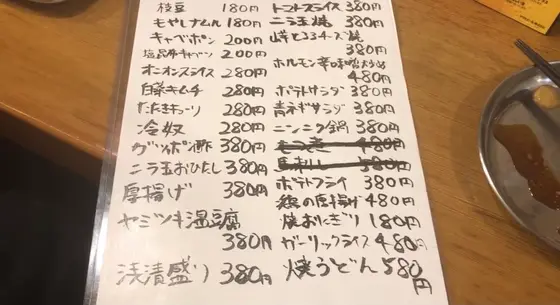 枝豆 180円
もやしナムル 180円
キャベポン 200円
塩昆布キャベツ 200円
オニオンスライス 280円
白菜キムチ 280円
たたきキューリ 280円
冷奴 280円
ガツポン酢 380円
ニラ玉おひたし 380円
厚揚げ 380円
ヤミツキ湯豆腐
380円
浅漬盛り 380円
トマトスライス 380円
ニラ玉焼 380円
380円
ホルモン辛味噌炒め
480円
ポテトサラダ 380円
青ネギサラダ 380円
ニンニク鍋 380円
もつ煮 480円
馬刺し 580円
ポテトフライ 380円
鶏の厚揚げ 480円
焼おにぎり 180円
ガーリックライス 480円
焼うどん 580
円